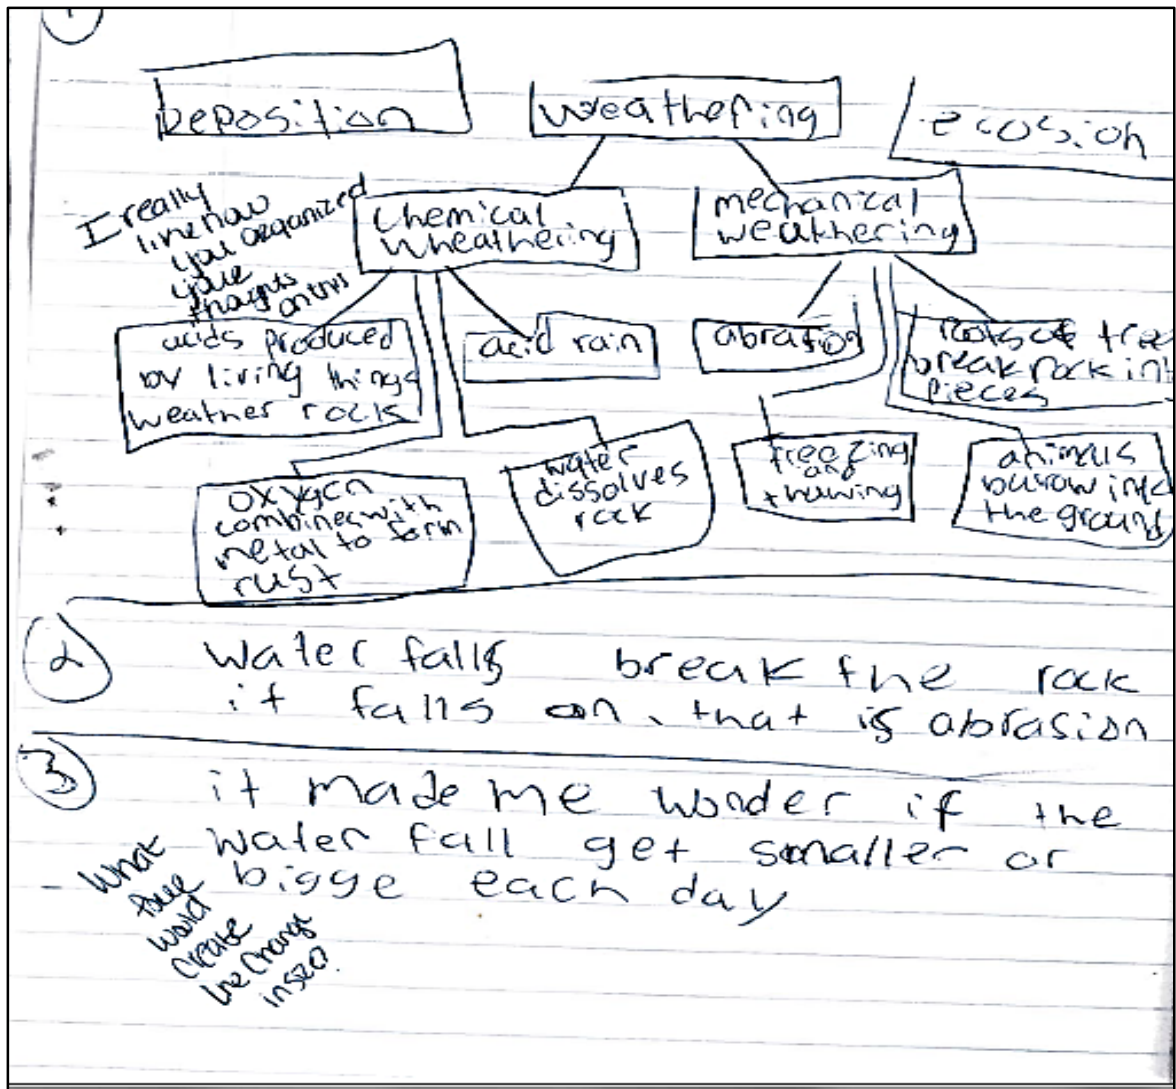 1
Deposition
weathering
erosion
I really
like how
you organized
your
thoughts
on this
Chemical
Wheathering
mechanical
weathering
acids produced
by living things
weather rock
acid rain
abrasion
roots of tree
break rock int
pieces
oxygen
combines with
metal to form
rust
water
dissolves
rock
freezing
and
thawing
animals
burow into
the ground
2
Water falls break the rock
it falls on. that is abrasion
3
it made me wonder if the
water fall get smaller or
bigge each day
What
force
would
create
the change
in size?